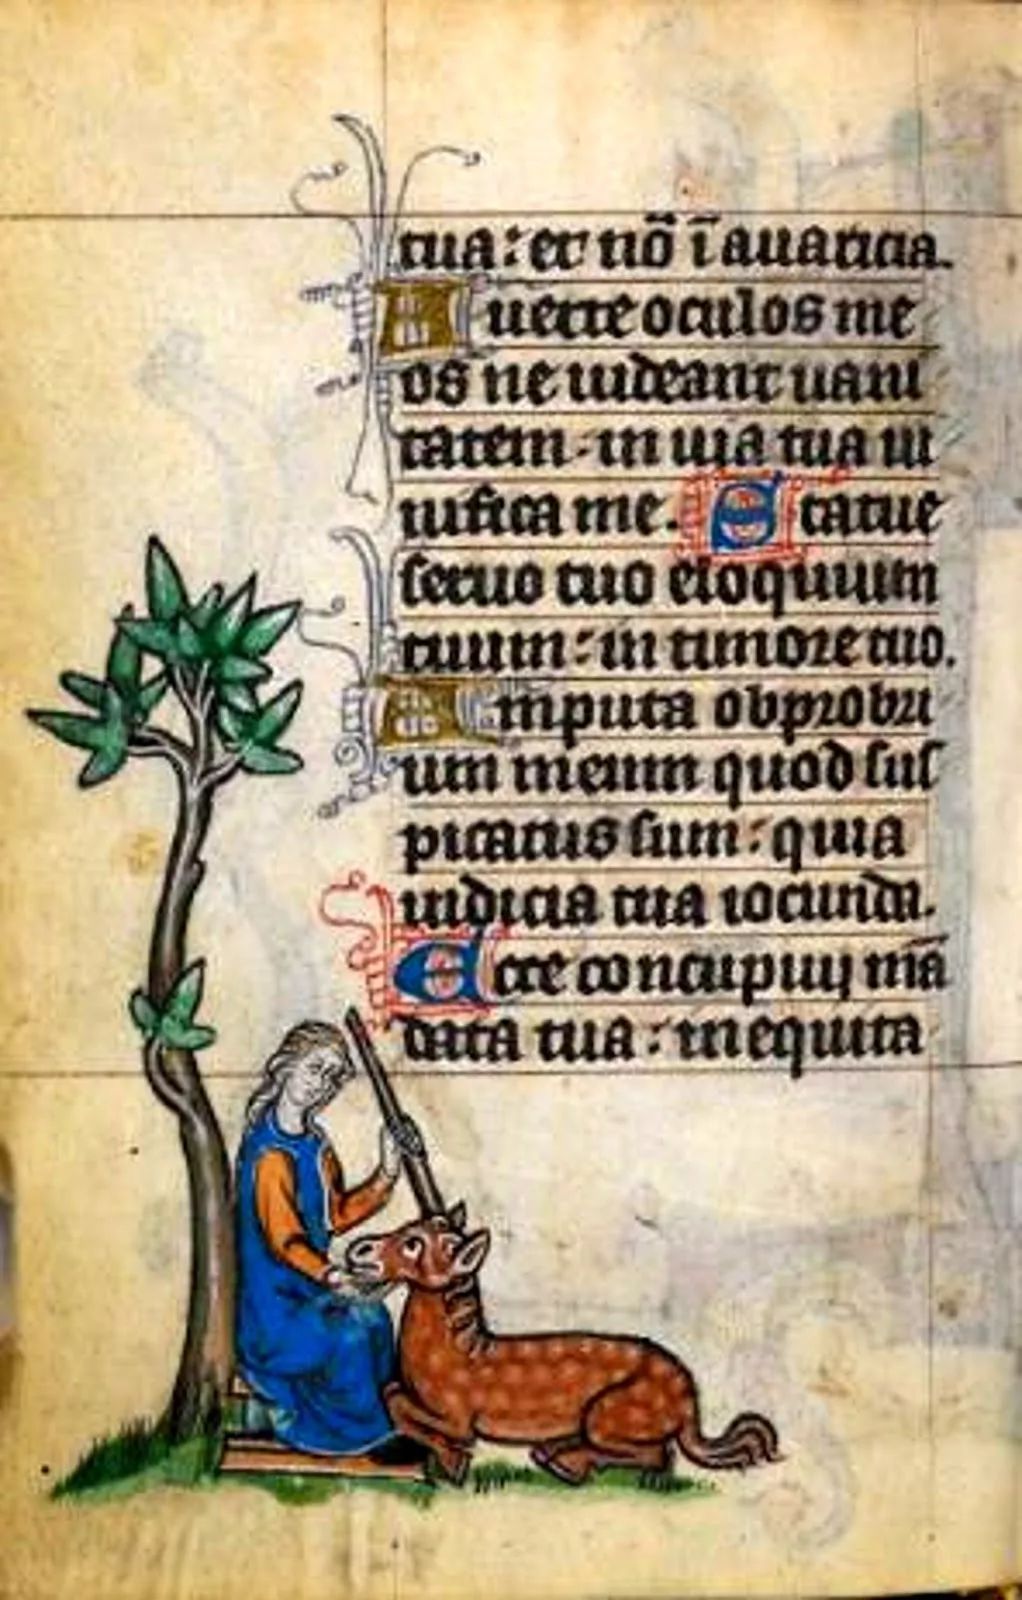 tua: et nō ī auaricia.
Auerte oculos me
os ne uideant uani
tatem. in uia tua ui
uifica me. Statue
seruo tuo eloquium
tuum: in timore tuo.
Amputa obprobri
um meum quod sus
picatus sum: quia
iudicia tua iocunda.
Ecce concupiuij mā
data tua: in equita